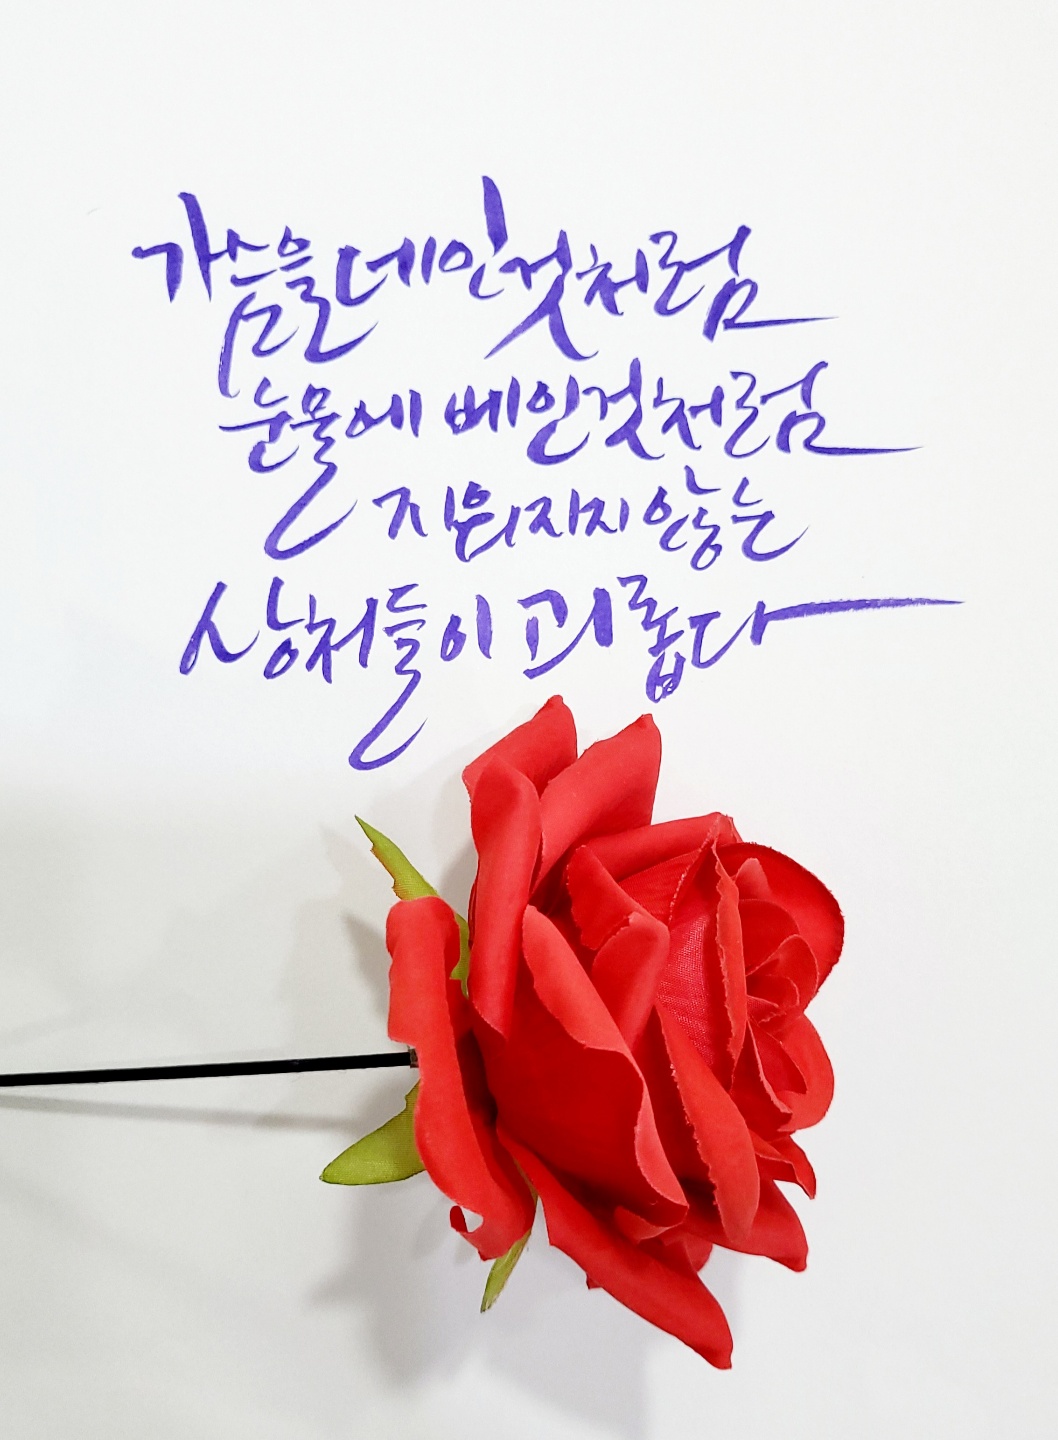 가슴을 데인것처럼
눈물에 베인것처럼
지워지지 않는
상처들이 괴롭다